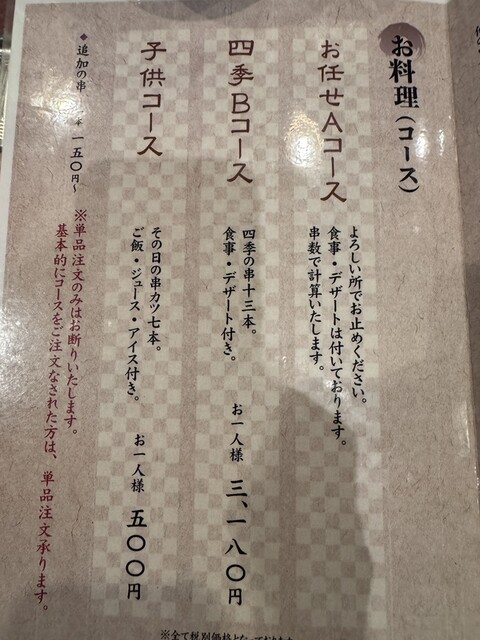 お料理(コース)
お任せAコース
よろしい所でお止めください。
食事・デザートは付いております。
串数で計算いたします。
四季Bコース
四季の串十三本。
食事・デザート付き。
お一人様 三、一八〇円
子供コース
その日の串カツ七本。
ご飯・ジュース・アイス付き。
お一人様 五〇〇円
◆追加の串 一五〇円～
※単品注文のみはお断りいたします。
基本的にコースをご注文なされた方は、単品注文承ります。
※全て税別価格となっており